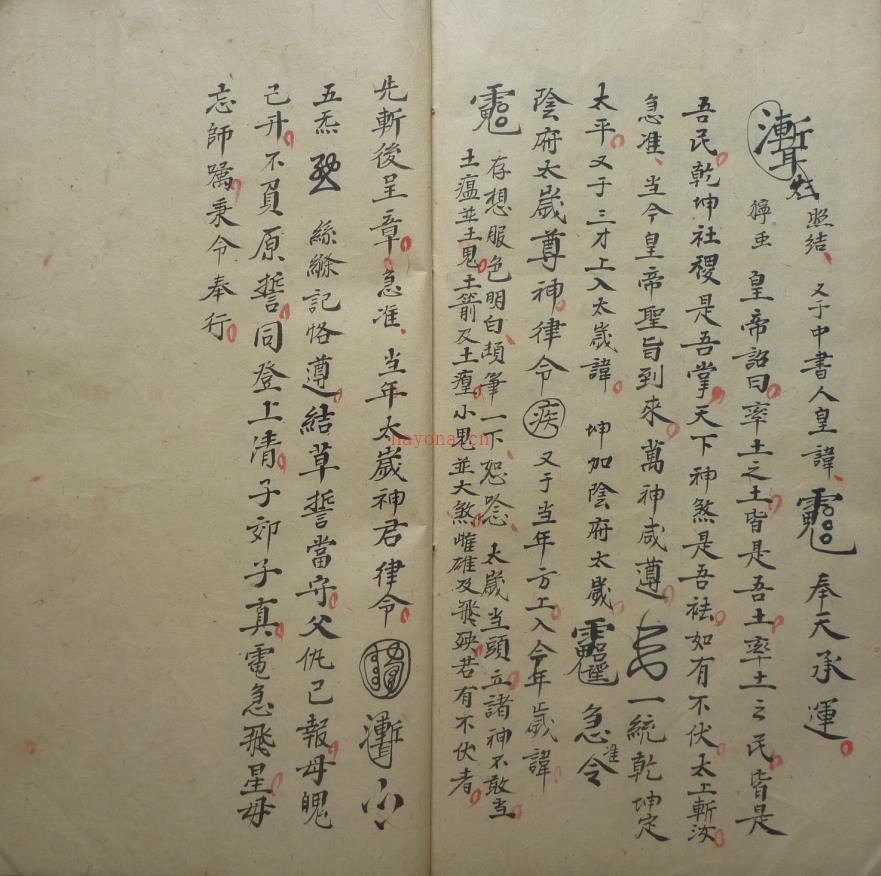 照結 又于中書人皇諱 奉天承運
皇帝詔曰率土之土皆是吾土率土之民皆是
吾民乾坤社稷是吾掌天下神煞是吾祛如有不伏太上斬汝
急准 当今皇帝聖旨到來萬神咸遵 一統乾坤定
太平又于三才上入太歲諱 坤加陰府太歲 急准令
陰府太歲尊神律令 疾 又于当年方工入今年歲諱
存想服色明白 筆一下恕唸 太歲当頭立諸神不敢当
土瘟並土鬼土箭及土瘟小鬼並大煞雌雄及飛殃若有不伏者
先斬後呈章急准 当年太歲神君律令
五炁 絲絲記恪遵結草誓當守父仇已報母愧
已升不負原誓同登上清子卯子真電急飛星毋
忘師囑秉令奉行
hayona.cn